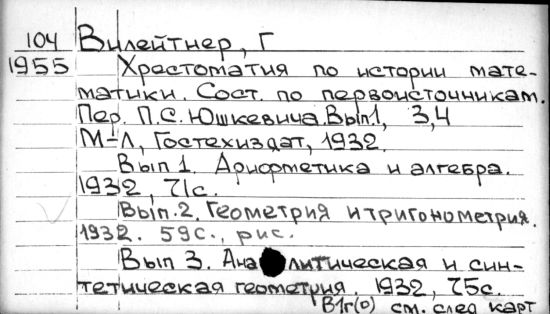 104 Вилейтнер, Г
1955 Хрестоматия по истории мате-
матики. Сост. по первоисточникам.
Пер. П.С. Юшкевича. Вып 1, 3,4
М-Л, Гостехиздат, 1932.
Вып 1. Арифметика и алгебра.
1932, 71с.
Вып. 2. Геометрия и тригонометрия.
1932. 59с., рис.
Вып 3. Аналитическая и син-
тетическая геометрия. 1932, 75с.
В1г(0) см. след карт